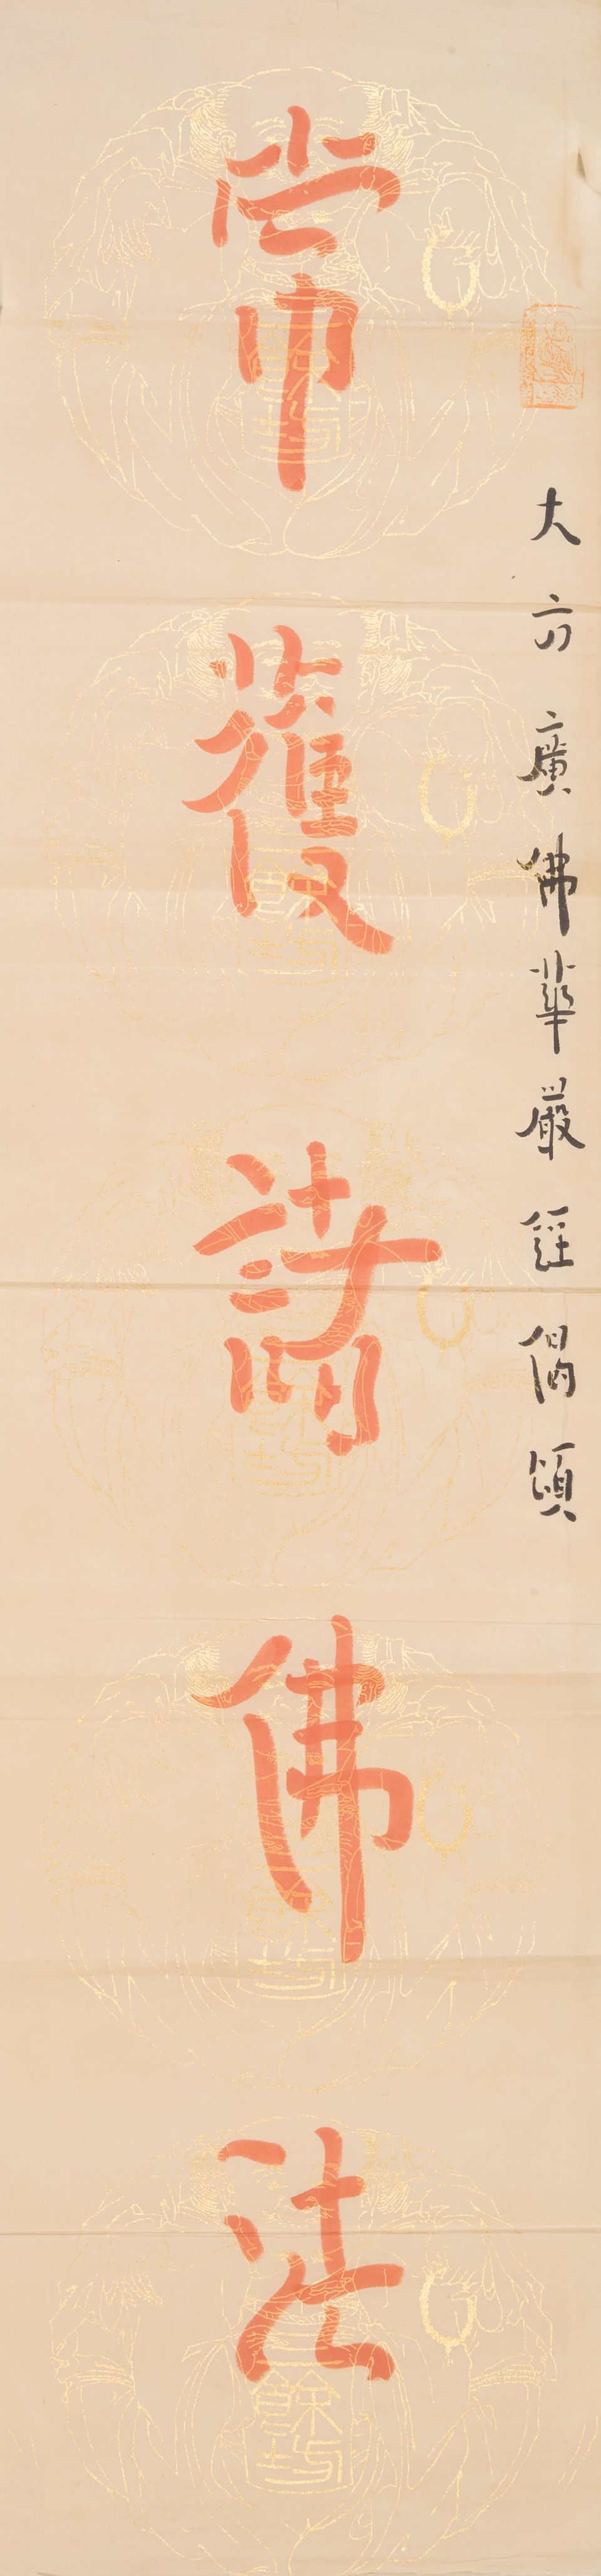 大方廣佛華嚴經偈頌
常獲諸佛法